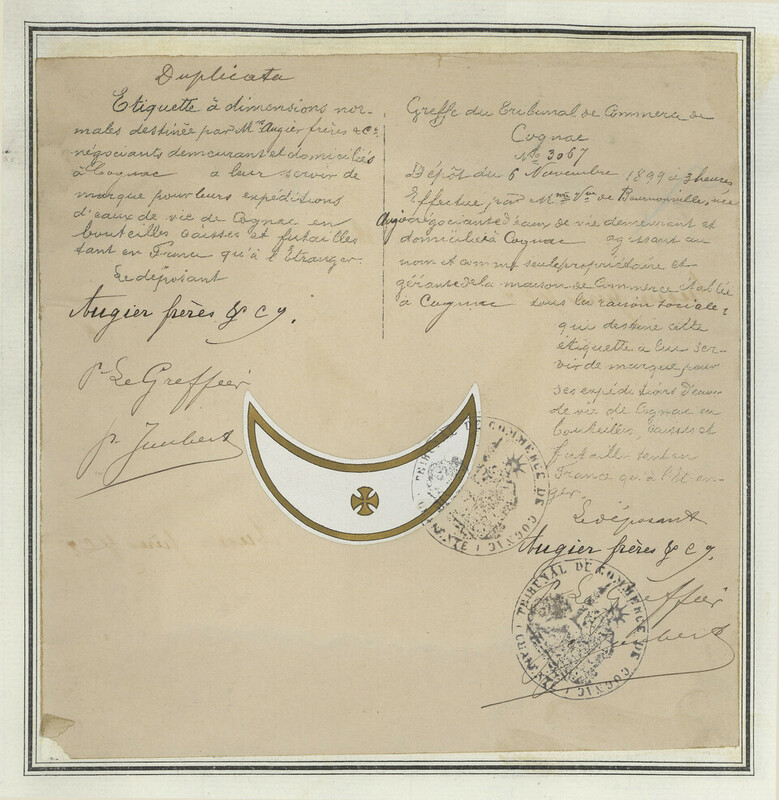 Duplicata
Etiquette à dimensions nor-
males destinée par Mrs Augier frères & Co
négociants demeurant et domiciliés
à Cognac a leur servir de
marque pour leurs expéditions
d'eaux de vie de Cognac en
bouteilles caisses et futailles
tant en France qu'à l'Etranger.
Le déposant
Augier frères & Cy.
P. Le Greffier
p. Jumbert
Greffe du Tribunal de Commerce de
Cognac
No 3067
Dépôt du 6 Novembre 1899 à 3 heures
Effectué par Mme Vve de Bournonville, née
Augier négociante d'eaux de vie demeurant et
domiciliée à Cognac agissant au
nom et comme seule propriétaire et
gérante de la maison de Commerce établie
à Cognac sous la raison sociale:
qui destine cette
étiquette a lui ser-
vir de marque pour
ses expéditions d'eaux
de vie de Cognac en
bouteilles, caisses et
futaille tant en
France qu'à l'Etran-
ger.
Le déposant
Augier frères & Cy.
P. Le Greffier
TRIBUNAL DE COMMERCE DE COGNAC
TRIBUNAL DE COMMERCE DE COGNAC